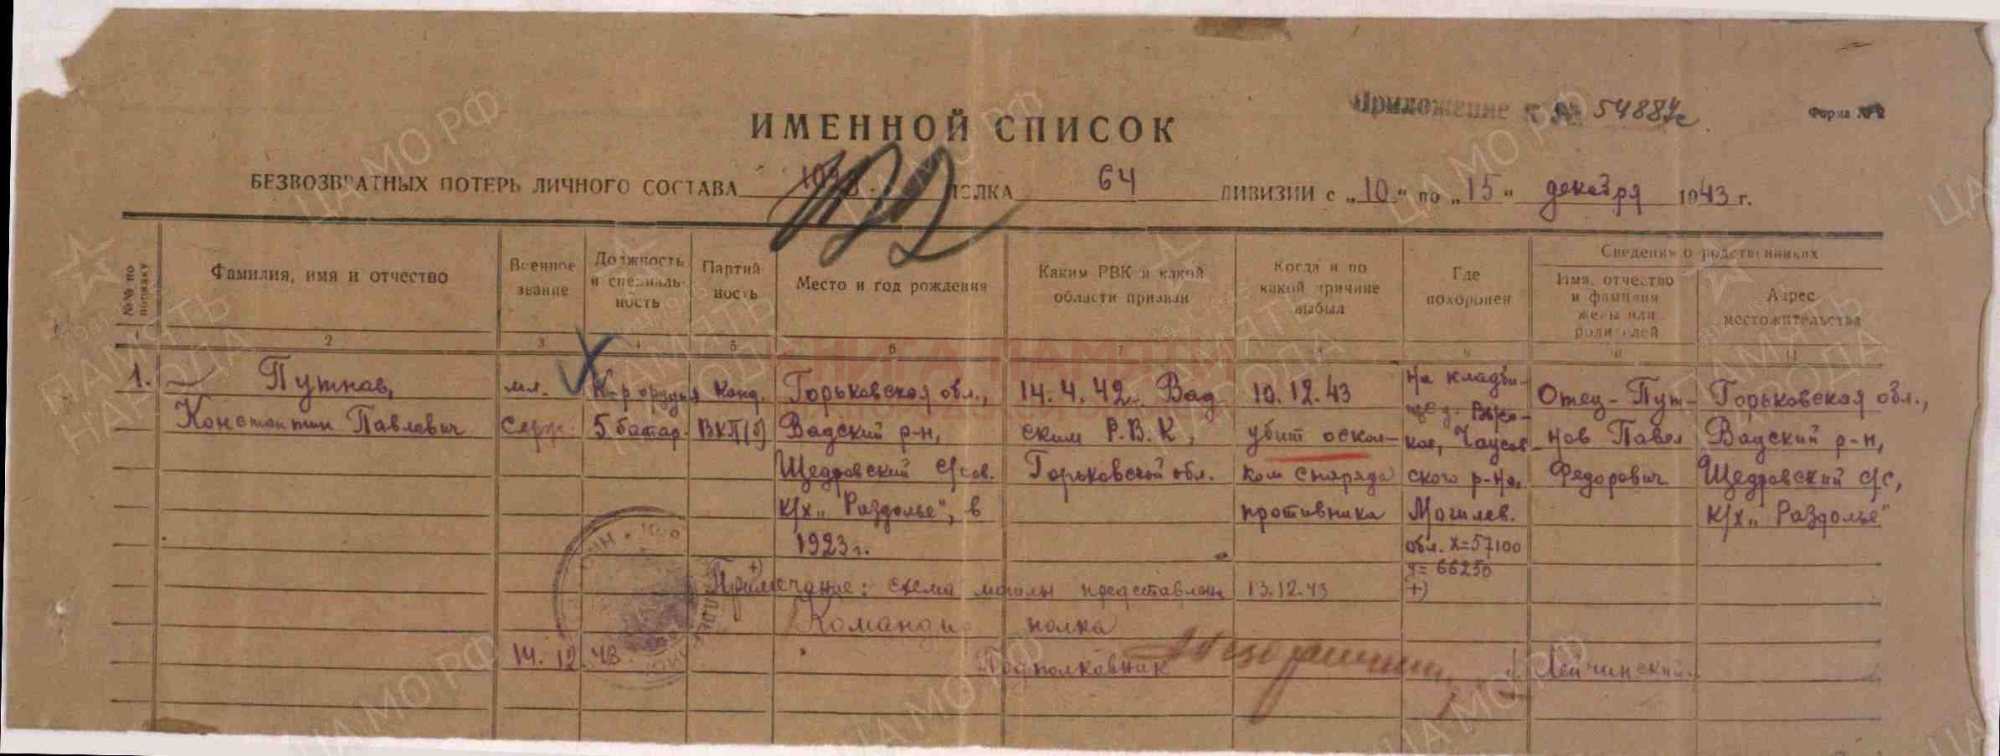 Приложение к № 54887с.
Форма № 2
ИМЕННОЙ СПИСОК
БЕЗВОЗВРАТНЫХ ПОТЕРЬ ЛИЧНОГО СОСТАВА ПОЛКА 64 ДИВИЗИИ с „10" по „15" декабря 1943 г.
№№ по порядку
Фамилия, имя и отчество
Военное звание
Должность и специальность
Партийность
Место и год рождения
Каким РВК и какой области призван
Когда и по какой причине выбыл
Где похоронен
Сведения о родственниках
Имя, отчество и фамилия жены или родителей
Адрес местожительства
2 3 4 5 6 7 9 10 11
1. Путнов,
Константин Павлович
мл.
серж.
К-р орудия
5 батар.
Канд.
ВКП(б)
Горьковская обл.,
Вадский р-н,
Щедровский с/сов.
к/х „Раздолье", в
1923 г.
14.4.42 Вад-
ским Р.В.К,
Горьковской обл.
10.12.43
убит оскол-
ком снаряда
противника
На кладби-
ще
Чаусов-
ского р-на,
Могилев.
обл. х=57100
у=66250
+)
Отец - Пут-
нов Павел
Федорович
Горьковская обл.,
Вадский р-н,
Щедровский с/с,
к/х „Раздолье"
+)
Примечание: схема могилы представлена 13.12.43
Командир полка
14.12.43
Подполковник
КНИГА ПАМЯТИ
ПАМЯТЬ НАРОДА
ЦАМО РФ